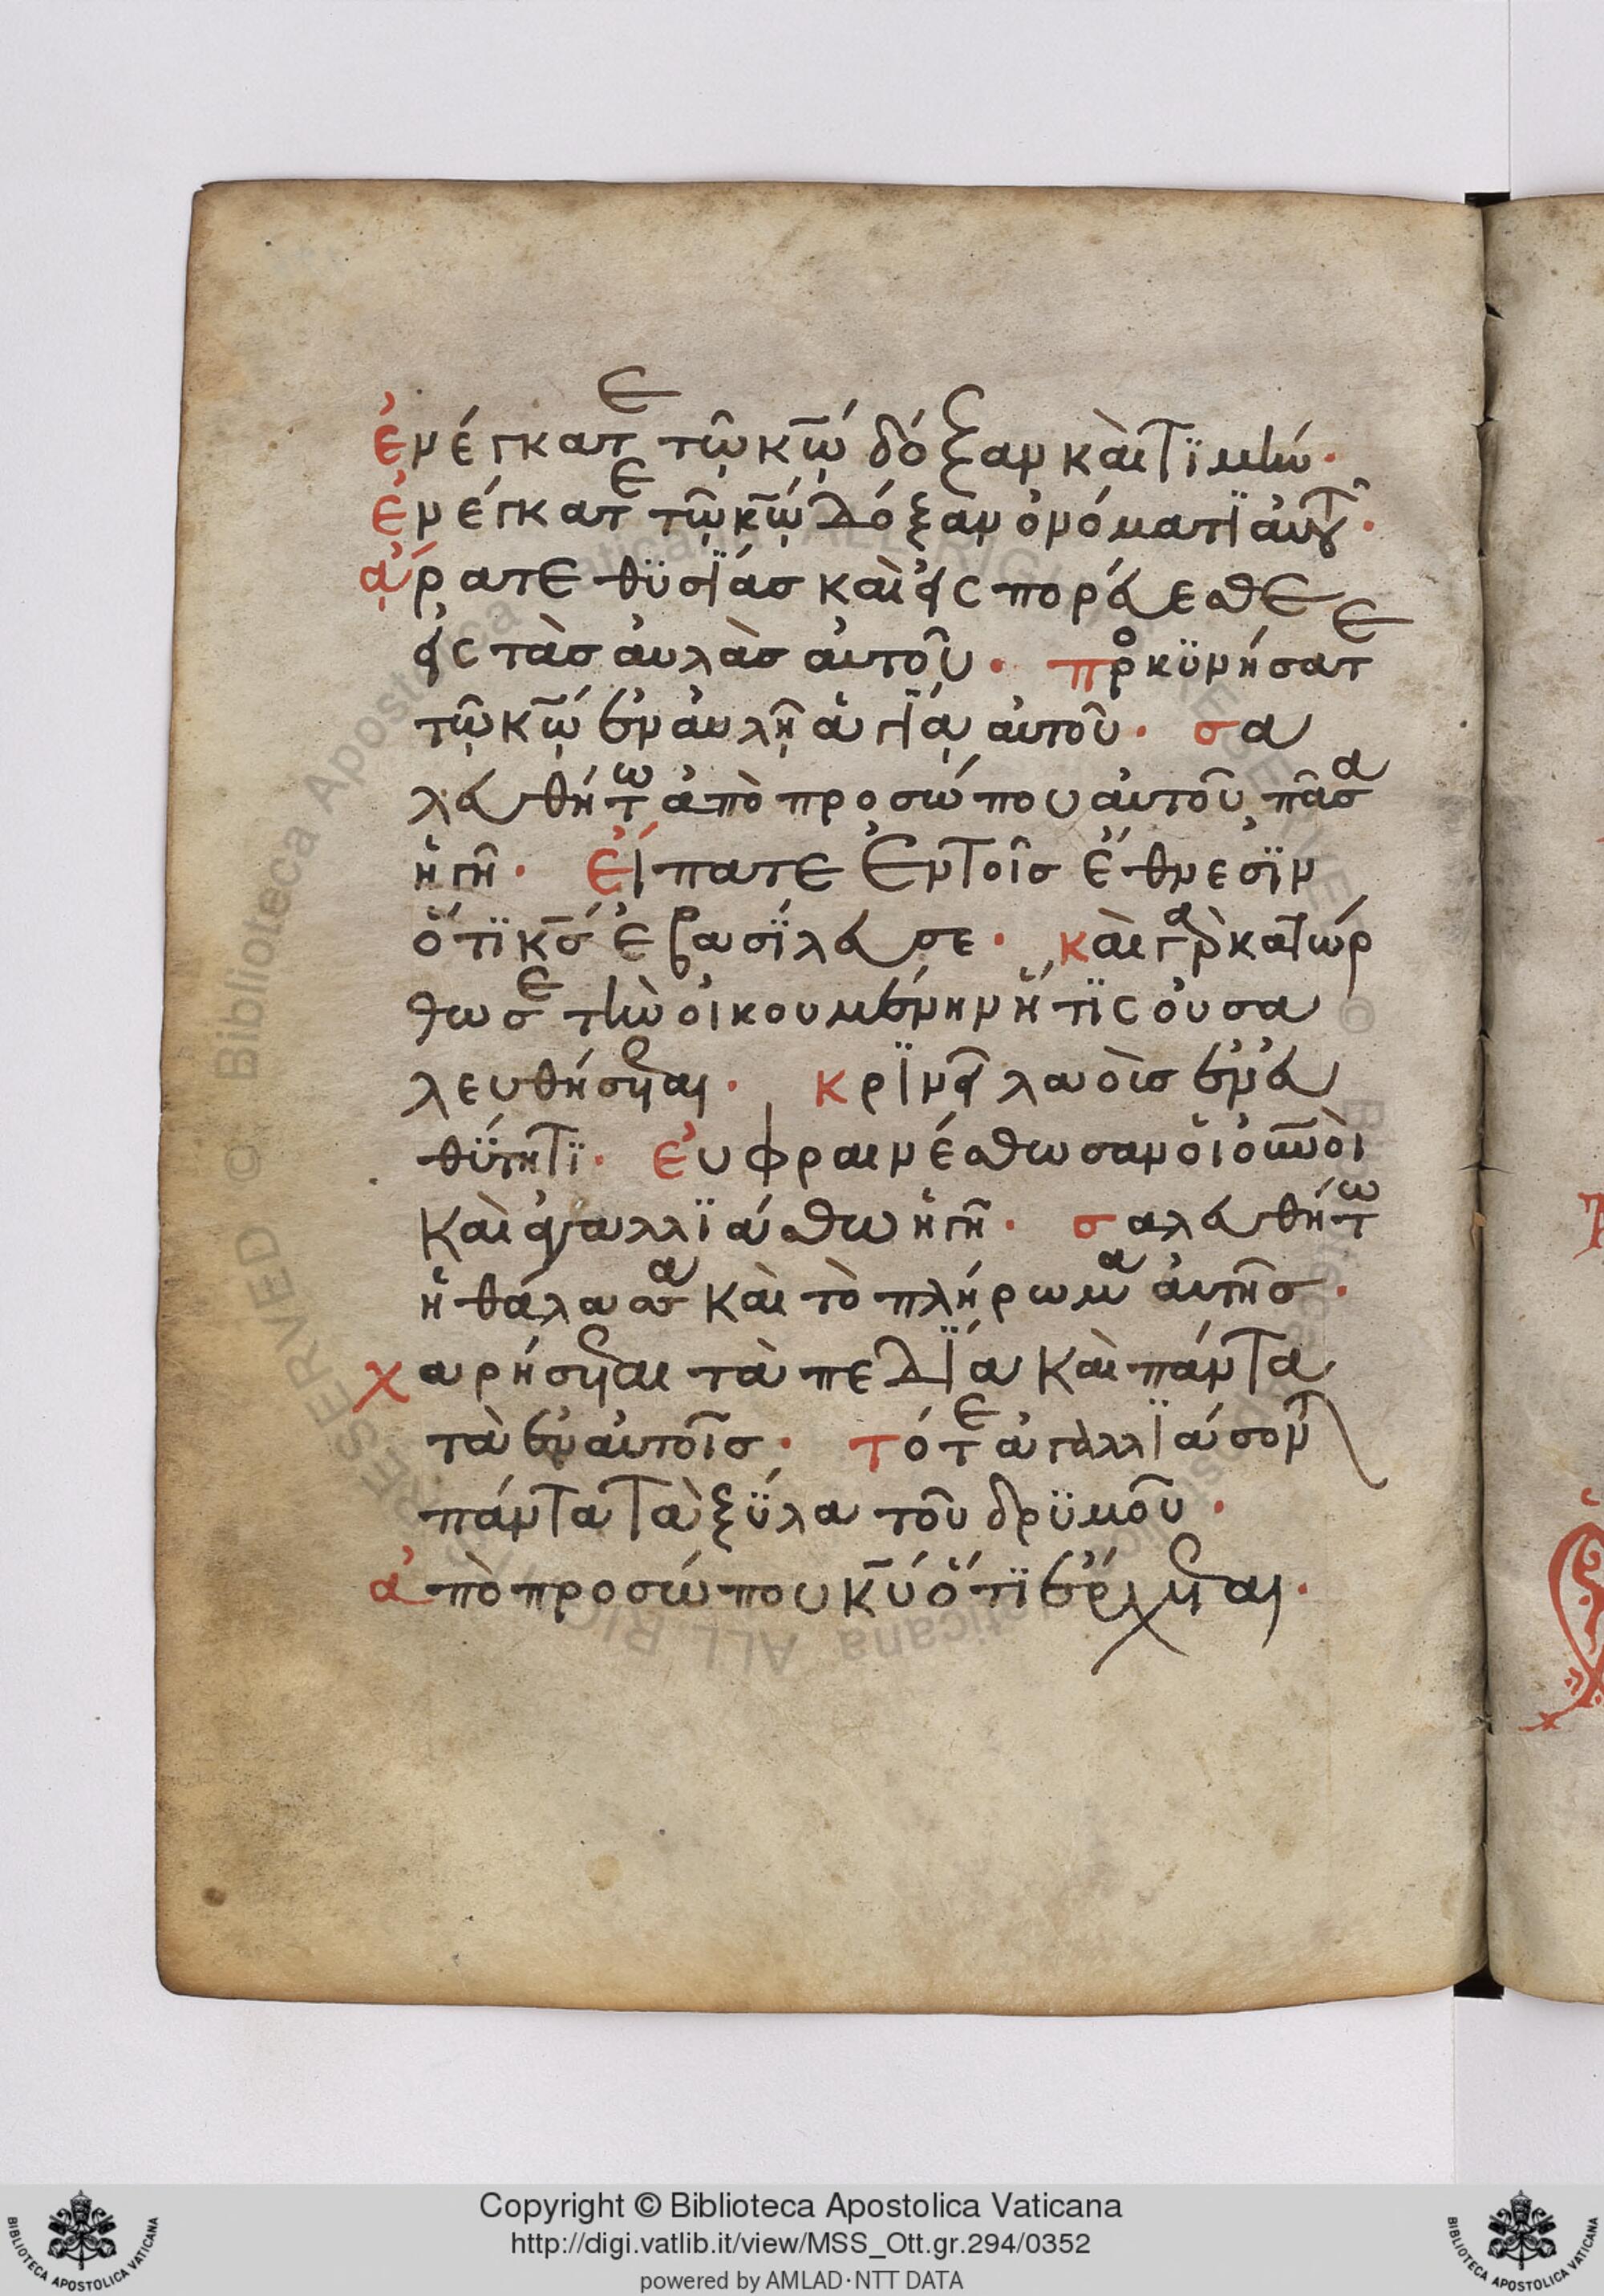 ἐνέγκατε τῶ κω δόξαν καὶ τϊμήν·
ἐνέγκατε τῶ κω δόξαν ὀνόματϊ αὐτοῦ·
ἄρατε θϋσίας καὶ εἰσπορεύεσθε
εἰς τὰς αὐλὰς αὐτοῦ· προσκϋνήσατε
τῶ κω ἐν αὐλῆ ἁγία αὐτοῦ· σα
λευθήτω ἀπὸ προσώπου αὐτοῦ πᾶσα
ἡ γῆ· εἴπατε ἐν τοῖς ἔθνεσϊν
ὅτϊ κς ἐβασίλευσε· καὶ γὰρ κατώρ
θωσε τὴν οἰκουμένην ἥτϊς οὐ σα
λευθήσεται· κρϊνεῖ λαοὺς ἐν εὐ
θύτητϊ· εὐφραινέσθωσαν οἱ οὐνοὶ
καὶ ἀγαλλϊάσθω ἡ γῆ· σαλευθήτω
ἡ θάλασσα καὶ τὸ πλήρωμα αὐτῆς·
χαρήσεται τὰ πεδία καὶ πάντα
τὰ ἐν αὐτοῖς· τότε ἀγαλλϊάσονται
πάντα τὰ ξύλα τοῦ δρϋμοῦ·
ἀπὸ προσώπου κυ ὅτϊ ἔρχεται·
Copyright © Biblioteca Apostolica Vaticana
http://digi.vatlib.it/view/MSS_Ott.gr.294/0352
powered by AMLAD·NTT DATA
BIBLIOTECA APOSTOLICA VATICANA
BIBLIOTECA APOSTOLICA VATICANA